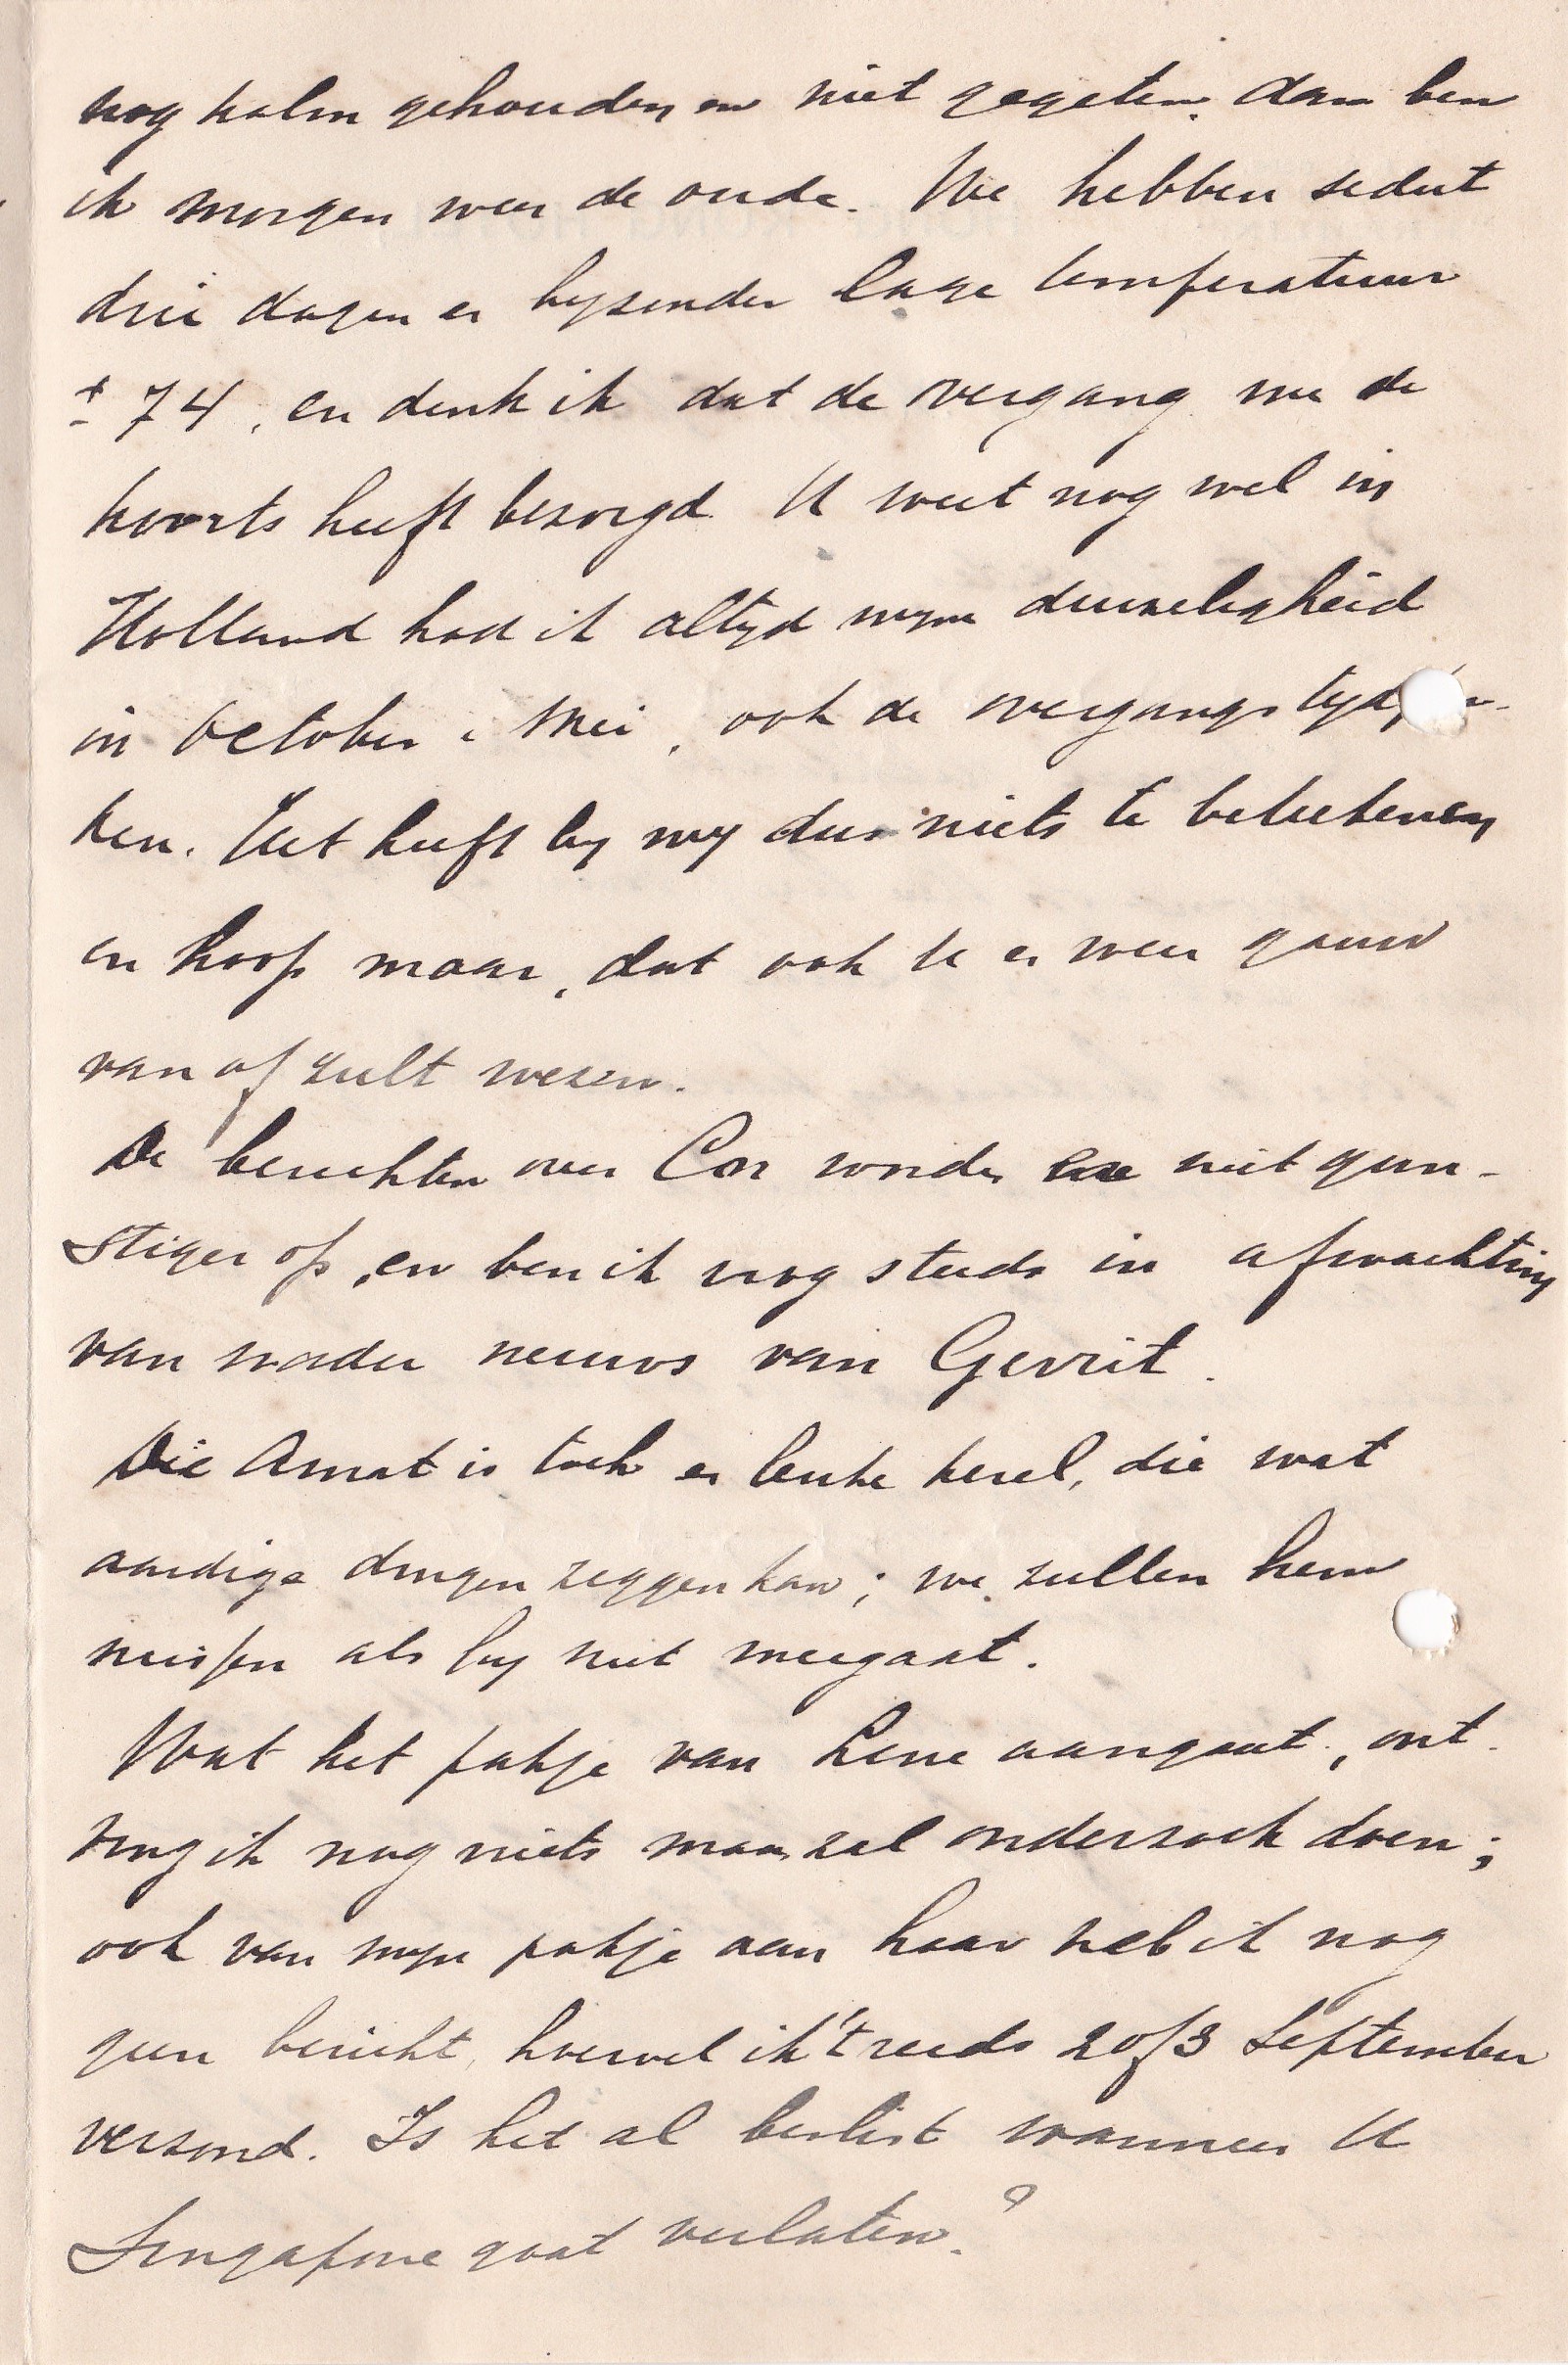 nog kalm gehouden en niet gegeten. dan ben
ik morgen weer de oude. We hebben sedert
drie dagen er byzonder lage temperatuur
± 74, en denk ik dat de overgang me de
koorts heeft bezorgd. U weet nog wel in
Holland had ik altyd myn duizeligheid
in October & Mei, ook de overgangs tyds
ken. Het heeft by my dus niets te beteekenen
en hoop maar, dat ook U er weer gauw
van af zult wezen.
De berichten over Cor worden niet gun-
stiger op, en ben ik nog steeds in afwachting
van nader nieuws van Gerrit.
Die Amat is toch er leuke kerel, die wat
aardige dingen zeggen kan; we zullen hem
missen als hy niet meegaat.
Wat het pakje van Lene aangaat, ont-
ving ik nog niets maar zal onderzoek doen;
ook van myn pakje aan haar heb ik nog
geen bericht, hoewel ik 't reeds 2 of 3 September
verzond. Is het al beslist wanneer U
Singapore gaat verlaten?